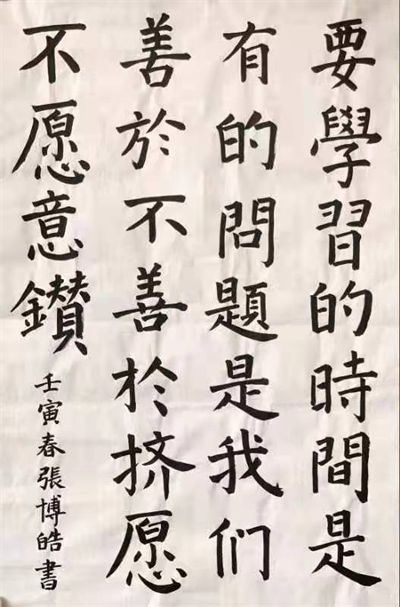 要學習的時間是
有的問題是我们
善於不善於挤愿
不愿意鑽
壬寅春張博皓書